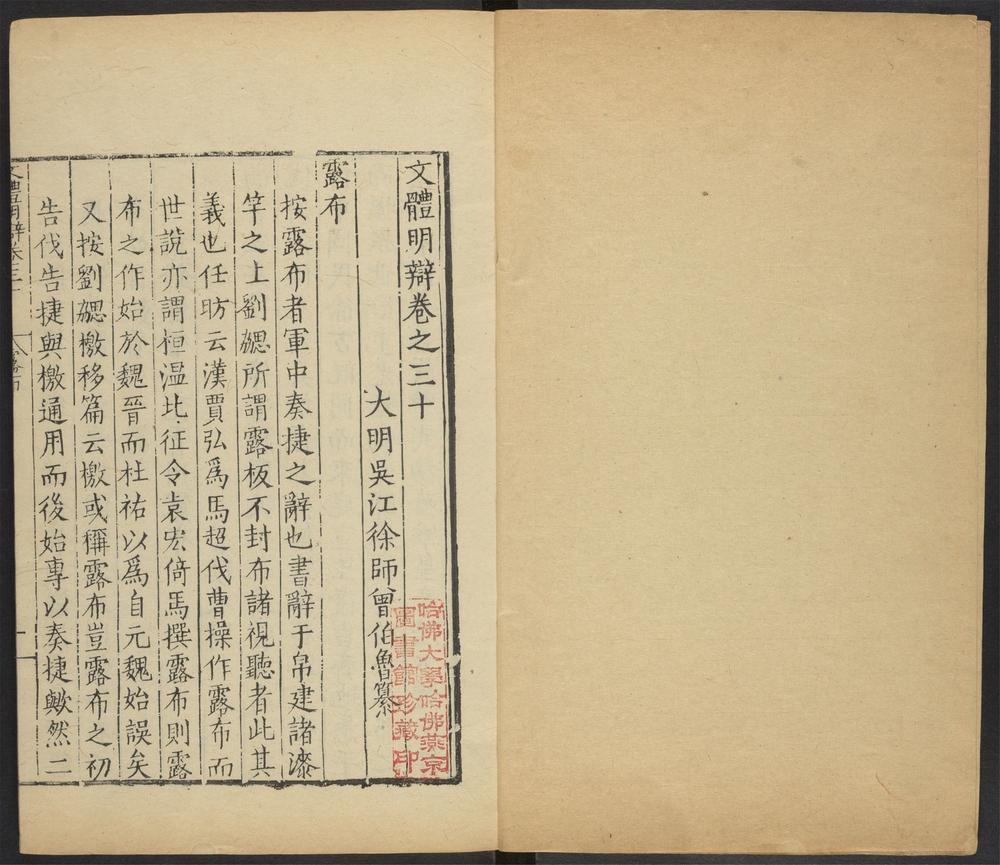 文體明辯卷之三十
大明吳江徐師曾伯魯纂
哈佛大學哈佛燕京
圖書館珍藏印
露布
按露布者軍中奏捷之辭也書辭于帛建諸漆
竿之上劉勰所謂露板不封布諸視聽者此其
義也任昉云漢賈弘為馬超伐曹操作露布而
世說亦謂桓溫北征令袁宏倚馬撰露布則露
布之作始於魏晉而杜祐以為自元魏始誤矣
又按劉勰檄移篇云檄或稱露布豈露布之初
告伐告捷與檄通用而後始專以奏捷歟然二
文體明辯卷三十
露布